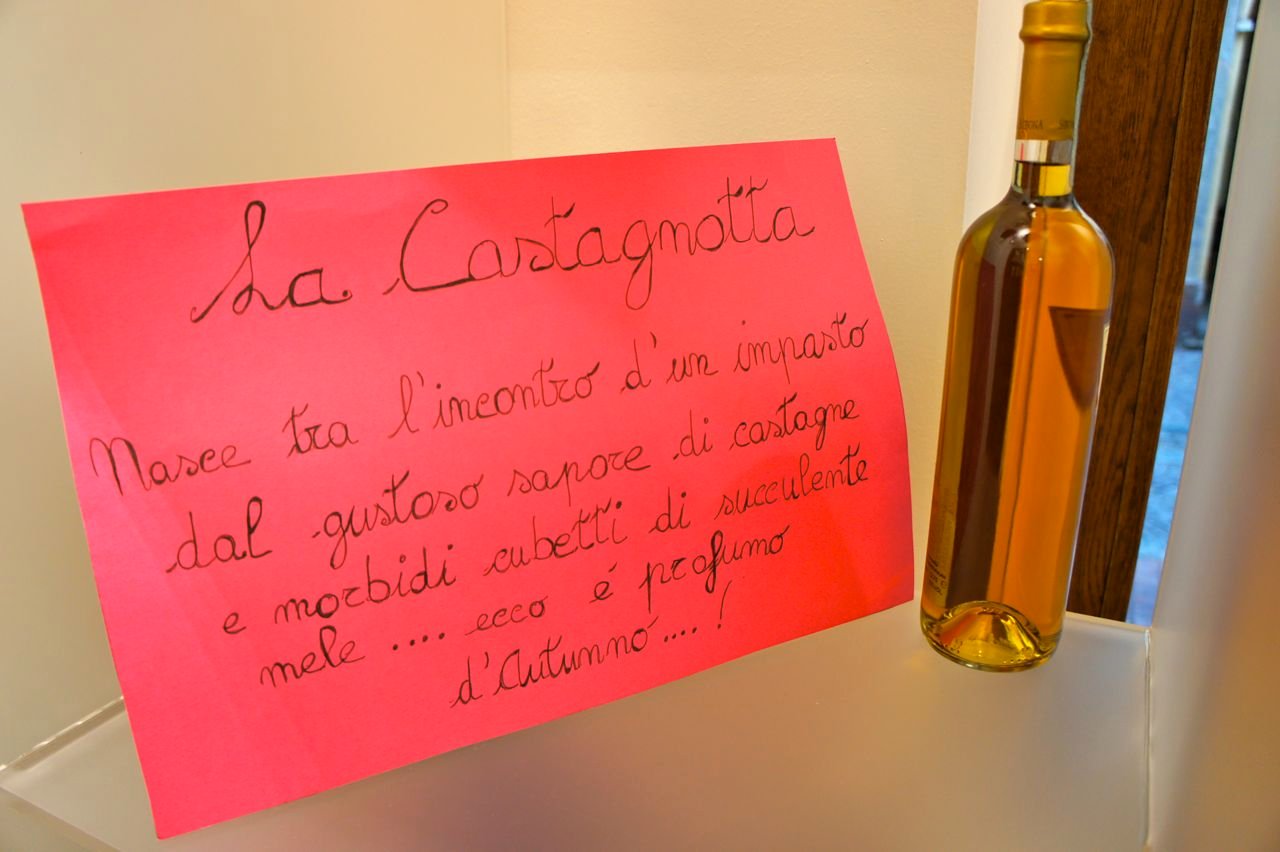 La Castagnotta
Nasce tra l'incontro d'un impasto
dal gustoso sapore di castagne
e morbidi cubetti di succulente
mele .... ecco é profumo
d'Autunno.... !